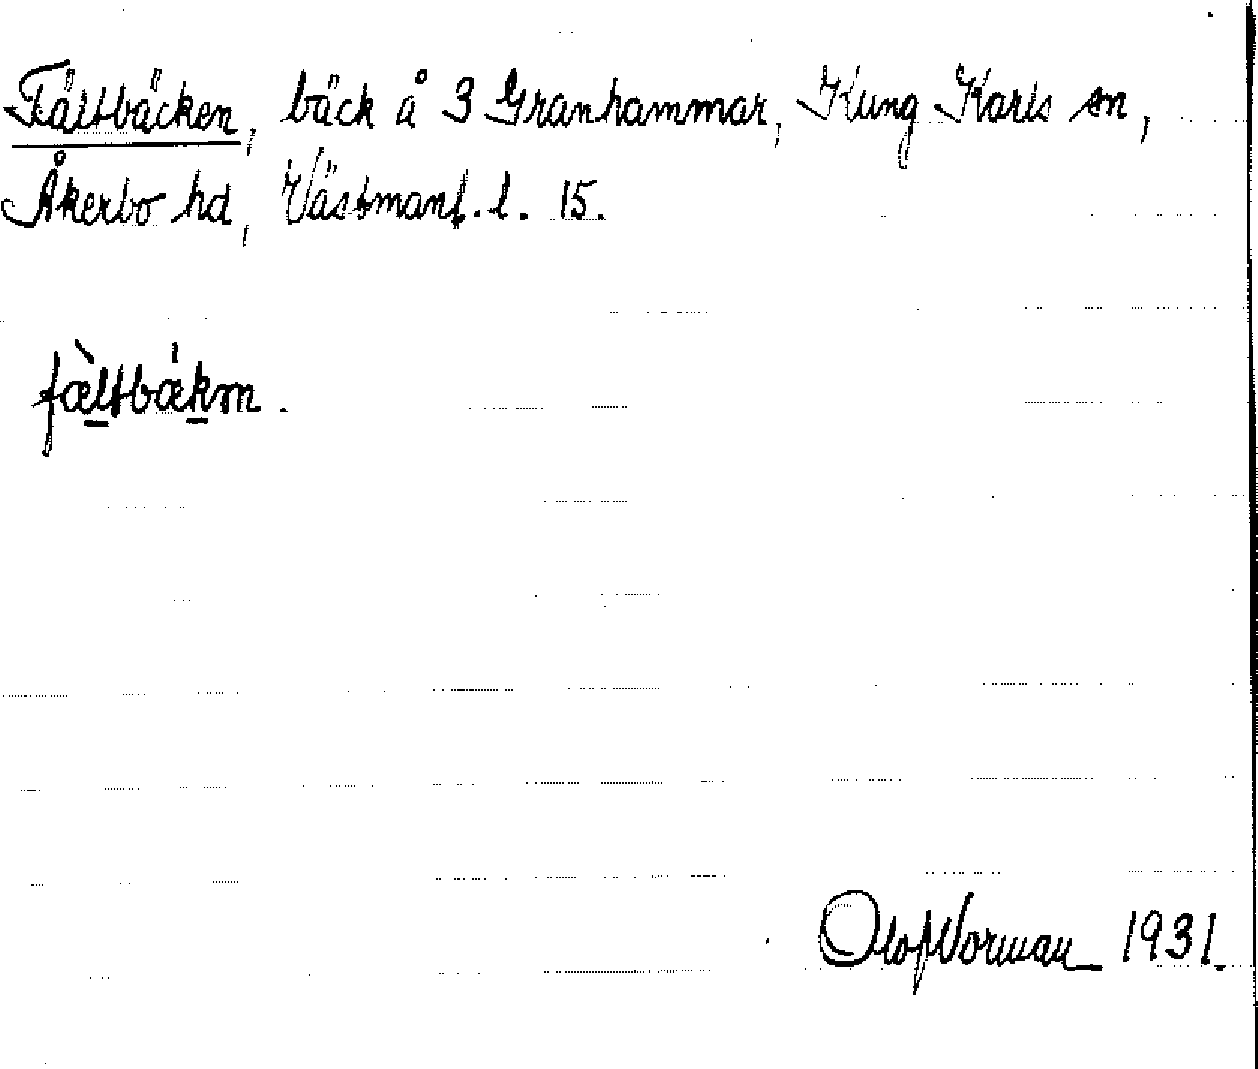 Fältbäcken, bäck å 3 Granhammar, Kung Karls sn,
Åkerbo hd, Västmanl. l. 15.
fæ̀ltbæ̍km.
Olof Norman 1931.